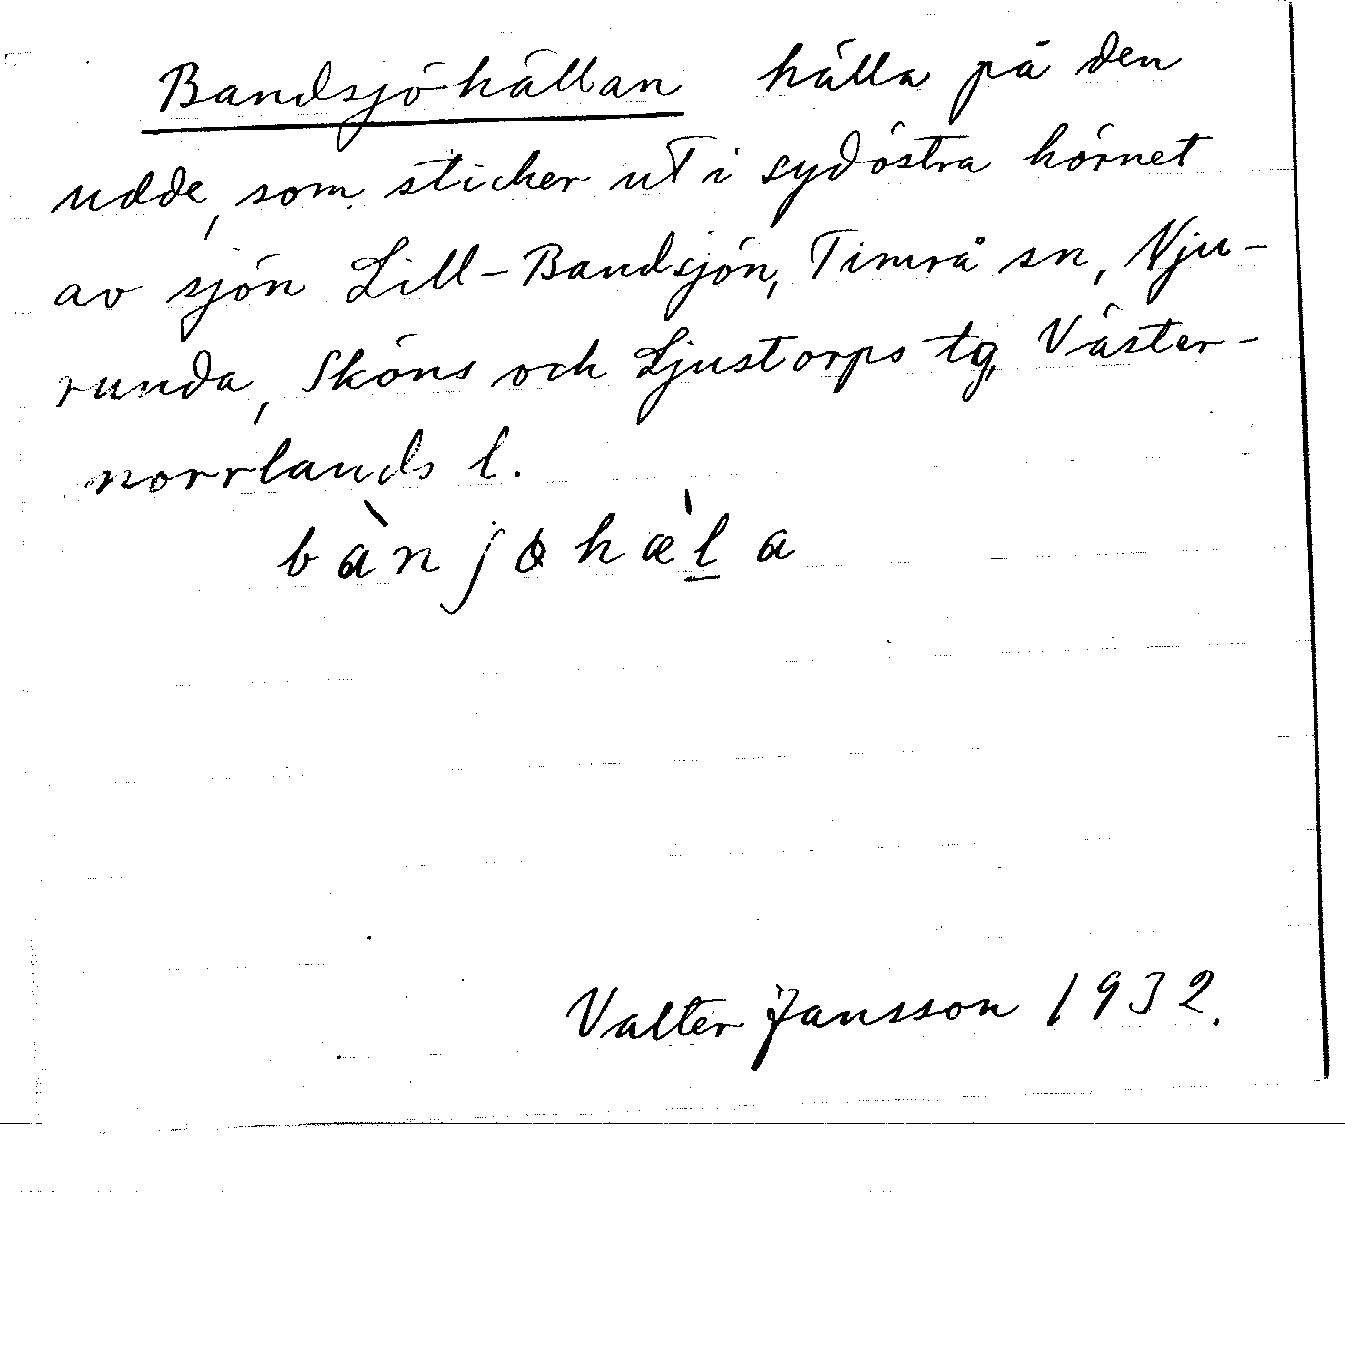 Bandsjöhällan hälla på den
udde, som sticker ut i sydöstra hörnet
av sjön Lill-Bandsjön, Timrå sn, Nju-
runda, Sköns och Ljustorps tg, Väster-
norrlands l.
bànʃɵhæ̀l̲a
Valter Jansson 1932.